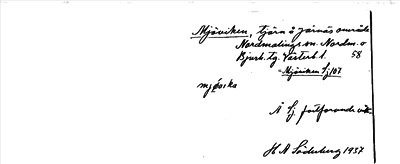 Mjöviken, tjärn å Järnäs område
Nordmalings sn. Nordm. o
Bjurh. tg. Västerb. l. 58
Mjöviken Sj/07
mjövika
Å Sj. fortfarande vik
H A Söderberg 1937